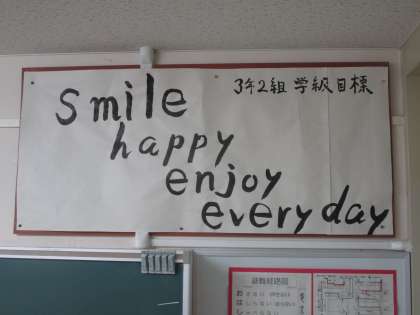 3年2組 学級目標
smile
happy
enjoy
every day
避難経路図